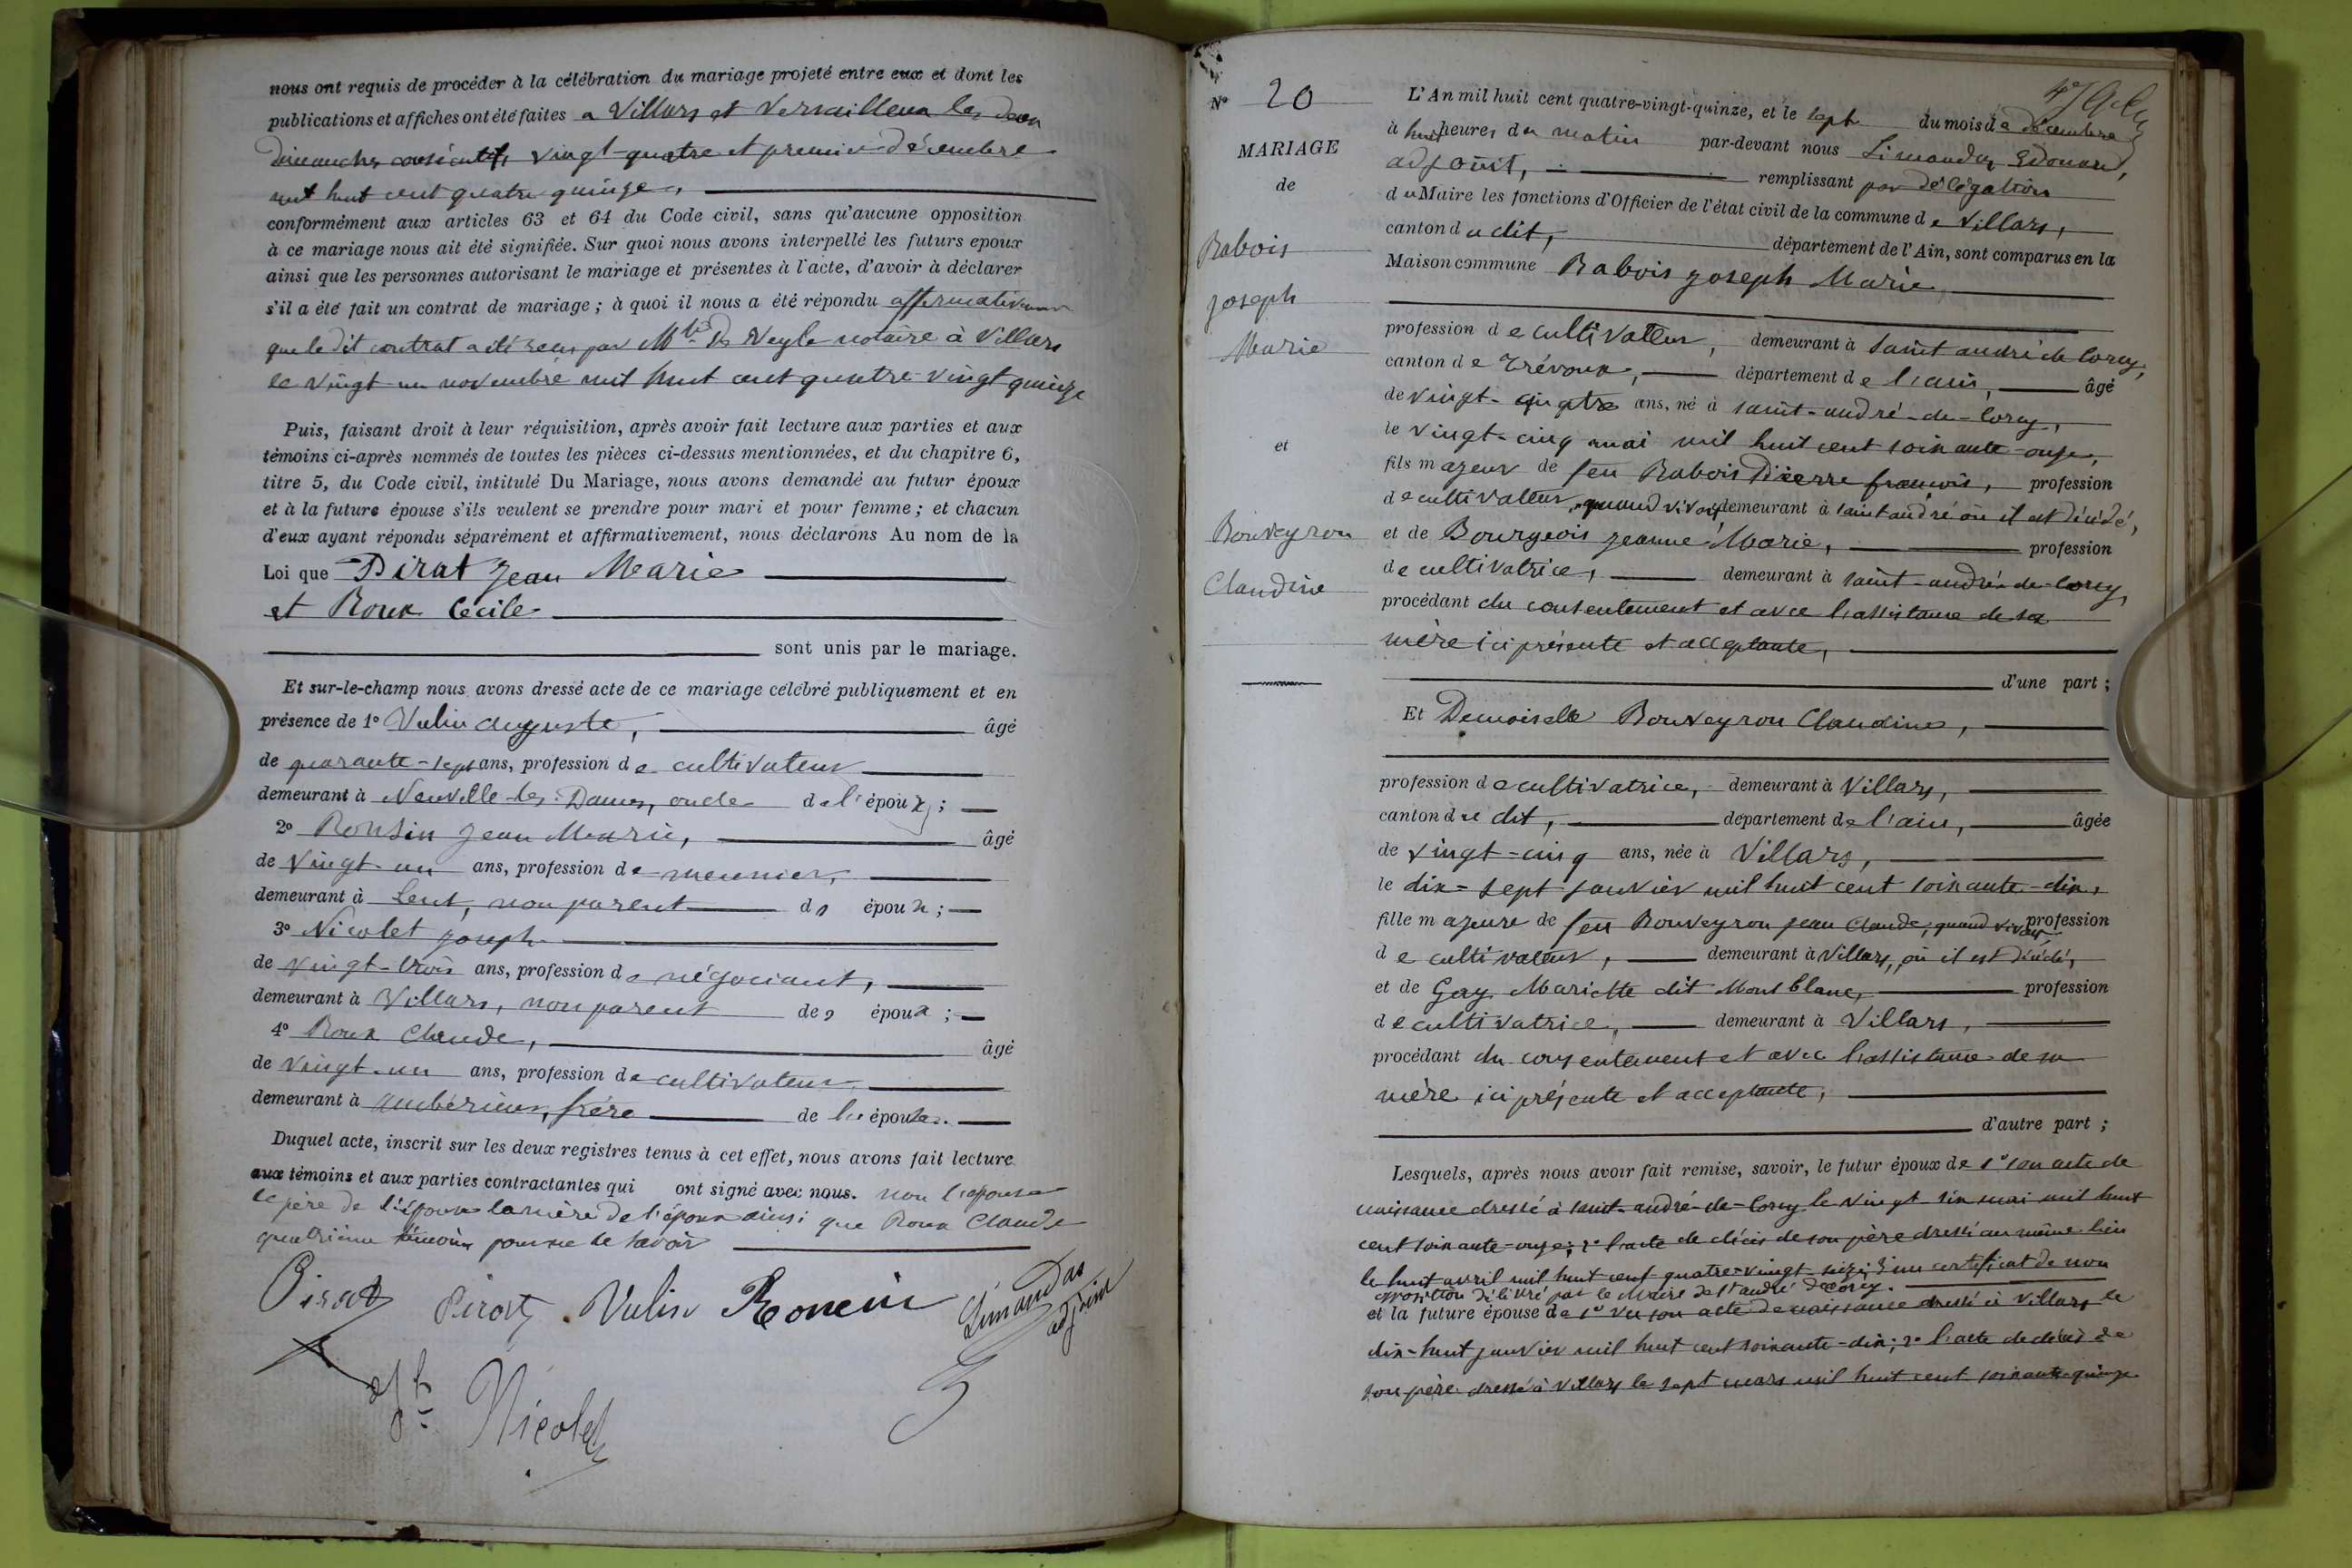 nous ont requis de procéder à la célébration du mariage projeté entre eux et dont les
publications et affiches ont été faites a Villars et Versailleux les deux
dimanches consécutifs vingt-quatre et premier décembre
mil huit cent quatre quinze,
conformément aux articles 63 et 64 du Code civil, sans qu'aucune opposition
à ce mariage nous ait été signifiée. Sur quoi nous avons interpellé les futurs epoux
ainsi que les personnes autorisant le mariage et présentes à l'acte, d'avoir à déclarer
s'il a été fait un contrat de mariage ; à quoi il nous a été répondu affirmativement
que le dit contrat a été reçu par notaire à Villars
le vingt un novembre mil huit cent quatre-vingt quinze
Puis, faisant droit à leur réquisition, après avoir fait lecture aux parties et aux
témoins ci-après nommés de toutes les pièces ci-dessus mentionnées, et du chapitre 6,
titre 5, du Code civil, intitulé Du Mariage, nous avons demandé au futur époux
et à la future épouse s'ils veulent se prendre pour mari et pour femme ; et chacun
d'eux ayant répondu séparément et affirmativement, nous déclarons Au nom de la
Loi que Pirat Jean Marie
et Roux Cécile
sont unis par le mariage.
Et sur-le-champ nous avons dressé acte de ce mariage célébré publiquement et en
présence de 1° Vulin Auguste, âgé
de quarante-sept ans, profession de cultivateur
demeurant à Neuville-les-Dames, oncle de l'époux ;
2° Ronsin Jean Marie, âgé
de vingt-un ans, profession de meunier,
demeurant à Lent, non parent des époux ;
3° Nicolet Joseph
de vingt-trois ans, profession de négociant,
demeurant à Villars, non parent des époux ;
4° Roux Claude, âgé
de vingt-un ans, profession de cultivateur
demeurant à Ambérieux, frère de la épouse.
Duquel acte, inscrit sur les deux registres tenus à cet effet, nous avons fait lecture
aux témoins et aux parties contractantes qui ont signé avec nous. non l'épouse
le père de l'époux la mère de l'époux ainsi que Roux Claude
quatrième témoin pour ne le savoir
Pirat Pirat Vulin Roncin Limandas adjoint
Jh Nicolet
N° 20
MARIAGE
de
Rabois
Joseph
Marie
et
Bouveyron
Claudine
L'An mil huit cent quatre-vingt-quinze, et le sept du mois de décembre
à huit heures du matin par-devant nous Limandas Edouard,
adjoint, remplissant par délégation
du Maire les fonctions d'Officier de l'état civil de la commune de Villars,
canton du dit, département de l'Ain, sont comparus en la
Maison commune Rabois Joseph Marie
profession de cultivateur, demeurant à saint andré de Corcy,
canton de Trévoux, département de l'ain, âgé
de vingt-quatre ans, né à saint-andré-de-Corcy,
le vingt-cinq mai mil huit cent soixante-onze,
fils majeur de feu Rabois Pierre françois, profession
de cultivateur, quand vivait demeurant à saint andré où il est décédé,
et de Bourgeois Jeanne Marie, profession
de cultivatrice, demeurant à saint-andré-de-Corcy,
procédant du consentement et avec l'assistance de sa
mère ici présente et acceptante,
d'une part ;
Et Demoiselle Bouveyron Claudine,
profession de cultivatrice, demeurant à Villars,
canton du dit, département de l'ain, âgée
de vingt-cinq ans, née à Villars,
le dix-sept janvier mil huit cent soixante-dix,
fille majeure de feu Bouveyron Jean Claude, quand vivait profession
de cultivateur, demeurant à Villars, où il est décédé,
et de Gay Mariette dit Montblanc, profession
de cultivatrice, demeurant à Villars,
procédant du consentement et avec l'assistance de sa
mère ici présente et acceptante,
d'autre part ;
Lesquels, après nous avoir fait remise, savoir, le futur époux de 1° son acte de
naissance dressé à saint-andré-de-Corcy le vingt six mai mil huit
cent soixante-onze; 2° l'acte de décès de son père dressé au même lieu
le huit avril mil huit cent quatre-vingt-seize; 3° un certificat de non
opposition délivré par le Maire de St andré de Corcy.
et la future épouse de 1° vu son acte de naissance dressé à Villars le
dix-huit janvier mil huit cent soixante-dix; 2° l'acte de décès de
son père dressé à Villars le sept mars mil huit cent soixante-quinze